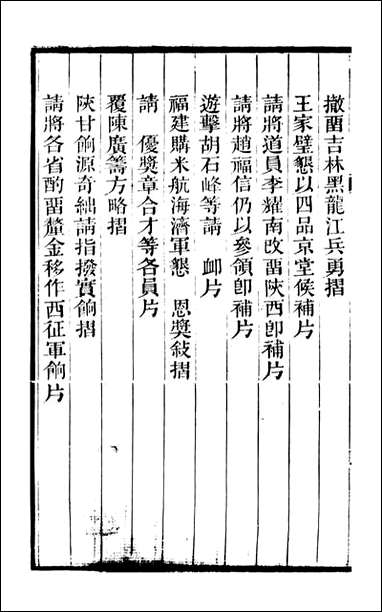 撤畱吉林黑龍江兵勇摺
王家璧懇以四品京堂候補片
請將道員李耀南改畱陝西卽補片
請將趙福信仍以參領卽補片
遊擊胡石峰等請　卹片
福建購米航海濟軍懇　恩獎敍摺
請　優獎章合才等各員片
覆陳廣籌方略摺
陝甘餉源奇絀請指撥實餉摺
請將各省酌畱釐金移作西征軍餉片